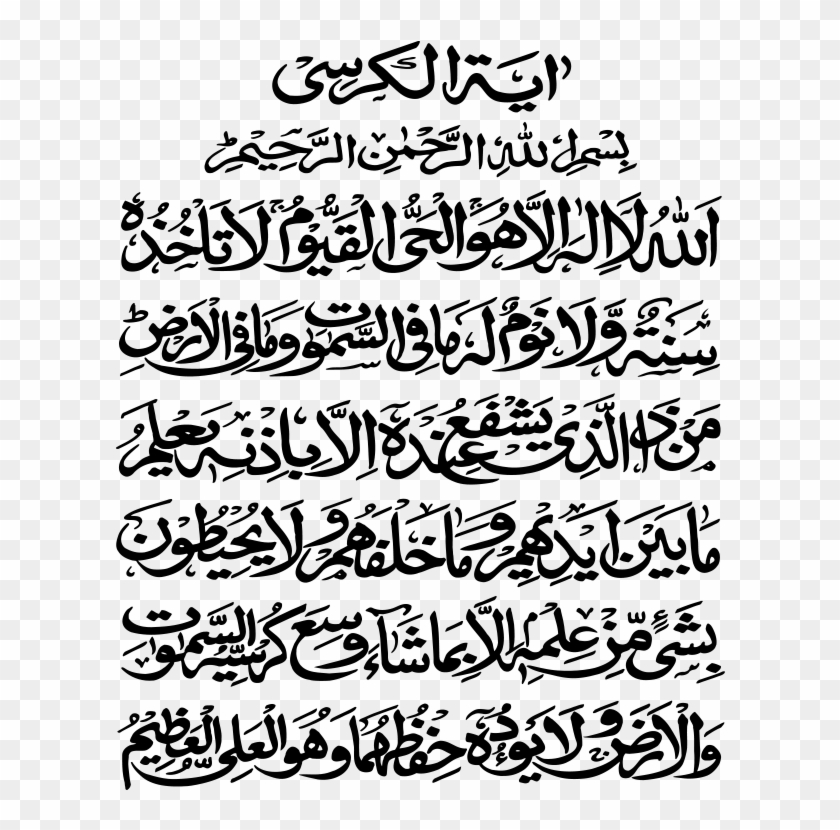 اية الكرسی
بِسْمِ اللّٰهِ الرَّحْمٰنِ الرَّحِيْمِ
اَللّٰهُ لَا اِلٰهَ اِلَّا هُوَ الْحَیُّ الْقَيُّوْمُ لَا تَاْخُذُهٗ
سِنَةٌ وَّلَا نَوْمٌ لَهٗ مَا فِی السَّمٰوٰتِ وَمَا فِی الْاَرْضِ
مَنْ ذَا الَّذِیْ يَشْفَعُ عِنْدَهٗ اِلَّا بِاِذْنِهٖ يَعْلَمُ
مَا بَيْنَ اَيْدِيْهِمْ وَمَا خَلْفَهُمْ وَلَا يُحِيْطُوْنَ
بِشَیْءٍ مِّنْ عِلْمِهٖ اِلَّا بِمَا شَآءَ وَسِعَ كُرْسِيُّهُ السَّمٰوٰتِ
وَالْاَرْضَ وَلَا يَـُٔوْدُهٗ حِفْظُهُمَا وَهُوَ الْعَلِیُّ الْعَظِيْمُ